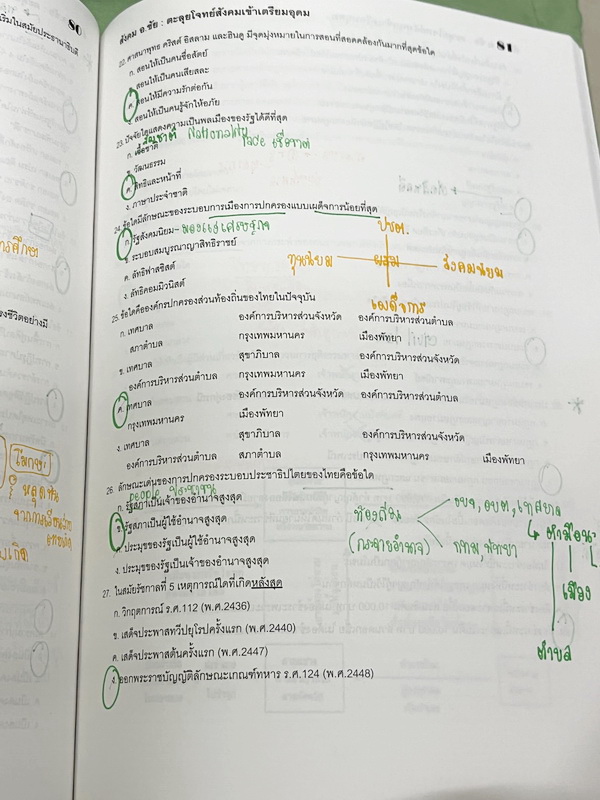 เริ่มในสมัยประชาธิปไตย์
80
สังคม อ.ชัย : ตะลุยโจทย์สังคมเข้าเตรียมอุดม
81
22. ศาสนาพุทธ คริสต์ อิสลาม และฮินดู มีจุดมุ่งหมายในการสอนที่สอดคล้องกันมากที่สุดข้อใด
ก. สอนให้เป็นคนซื่อสัตย์
ข. สอนให้เป็นคนเสียสละ
ค. สอนให้มีความรักต่อกัน
ง. สอนให้เป็นคนรู้จักให้อภัย
23. ปัจจัยใดแสดงความเป็นพลเมืองของรัฐได้ดีที่สุด
สัญชาติ Nationality
ก. เชื้อชาติ race เชื้อชาติ
ข. วัฒนธรรม
ค. สิทธิและหน้าที่
ง. ภาษาประจำชาติ
24. ข้อใดมีลักษณะของระบอบการเมืองการปกครองแบบเผด็จการน้อยที่สุด
ก. รัฐสังคมนิยม - มองแง่เศรษฐกิจ
ข. ระบอบสมบูรณาญาสิทธิราชย์
ค. ลัทธิฟาสซิสต์
ง. ลัทธิคอมมิวนิสต์
ปชต.
ทุนนิยม ผสม สังคมนิยม
เผด็จการ
25. ข้อใดคือองค์กรปกครองส่วนท้องถิ่นของไทยในปัจจุบัน
ก. เทศบาล องค์การบริหารส่วนจังหวัด องค์การบริหารส่วนตำบล
สภาตำบล กรุงเทพมหานคร เมืองพัทยา
ข. เทศบาล สุขาภิบาล องค์การบริหารส่วนจังหวัด
องค์การบริหารส่วนตำบล กรุงเทพมหานคร เมืองพัทยา
ค. เทศบาล องค์การบริหารส่วนจังหวัด องค์การบริหารส่วนตำบล
กรุงเทพมหานคร เมืองพัทยา
ง. เทศบาล สุขาภิบาล องค์การบริหารส่วนจังหวัด
องค์การบริหารส่วนตำบล สภาตำบล กรุงเทพมหานคร เมืองพัทยา
26. ลักษณะเด่นของการปกครองระบอบประชาธิปไตยของไทยคือข้อใด
people ประชาชน
ก. รัฐสภาเป็นเจ้าของอำนาจสูงสุด
ข. รัฐสภาเป็นผู้ใช้อำนาจสูงสุด
ค. ประมุขของรัฐเป็นผู้ใช้อำนาจสูงสุด
ง. ประมุขของรัฐเป็นเจ้าของอำนาจสูงสุด
ท้องถิ่น
(กระจายอำนาจ)
อบจ, อบต, เทศบาล
กทม, พัทยา
เมือง
ตำบล
27. ในสมัยรัชกาลที่ 5 เหตุการณ์ใดที่เกิดหลังสุด
ก. วิกฤตการณ์ ร.ศ.112 (พ.ศ.2436)
ข. เสด็จประพาสทวีปยุโรปครั้งแรก (พ.ศ.2440)
ค. เสด็จประพาสต้นครั้งแรก (พ.ศ.2447)
ง. ออกพระราชบัญญัติลักษณะเกณฑ์ทหาร ร.ศ.124 (พ.ศ.2448)